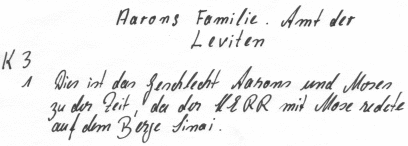 Aarons Familie. Amt der
Leviten
K 3
1 Dies ist das Geschlecht Aarons und Moses
zu der Zeit, da der HERR mit Mose redete
auf dem Berge Sinai.